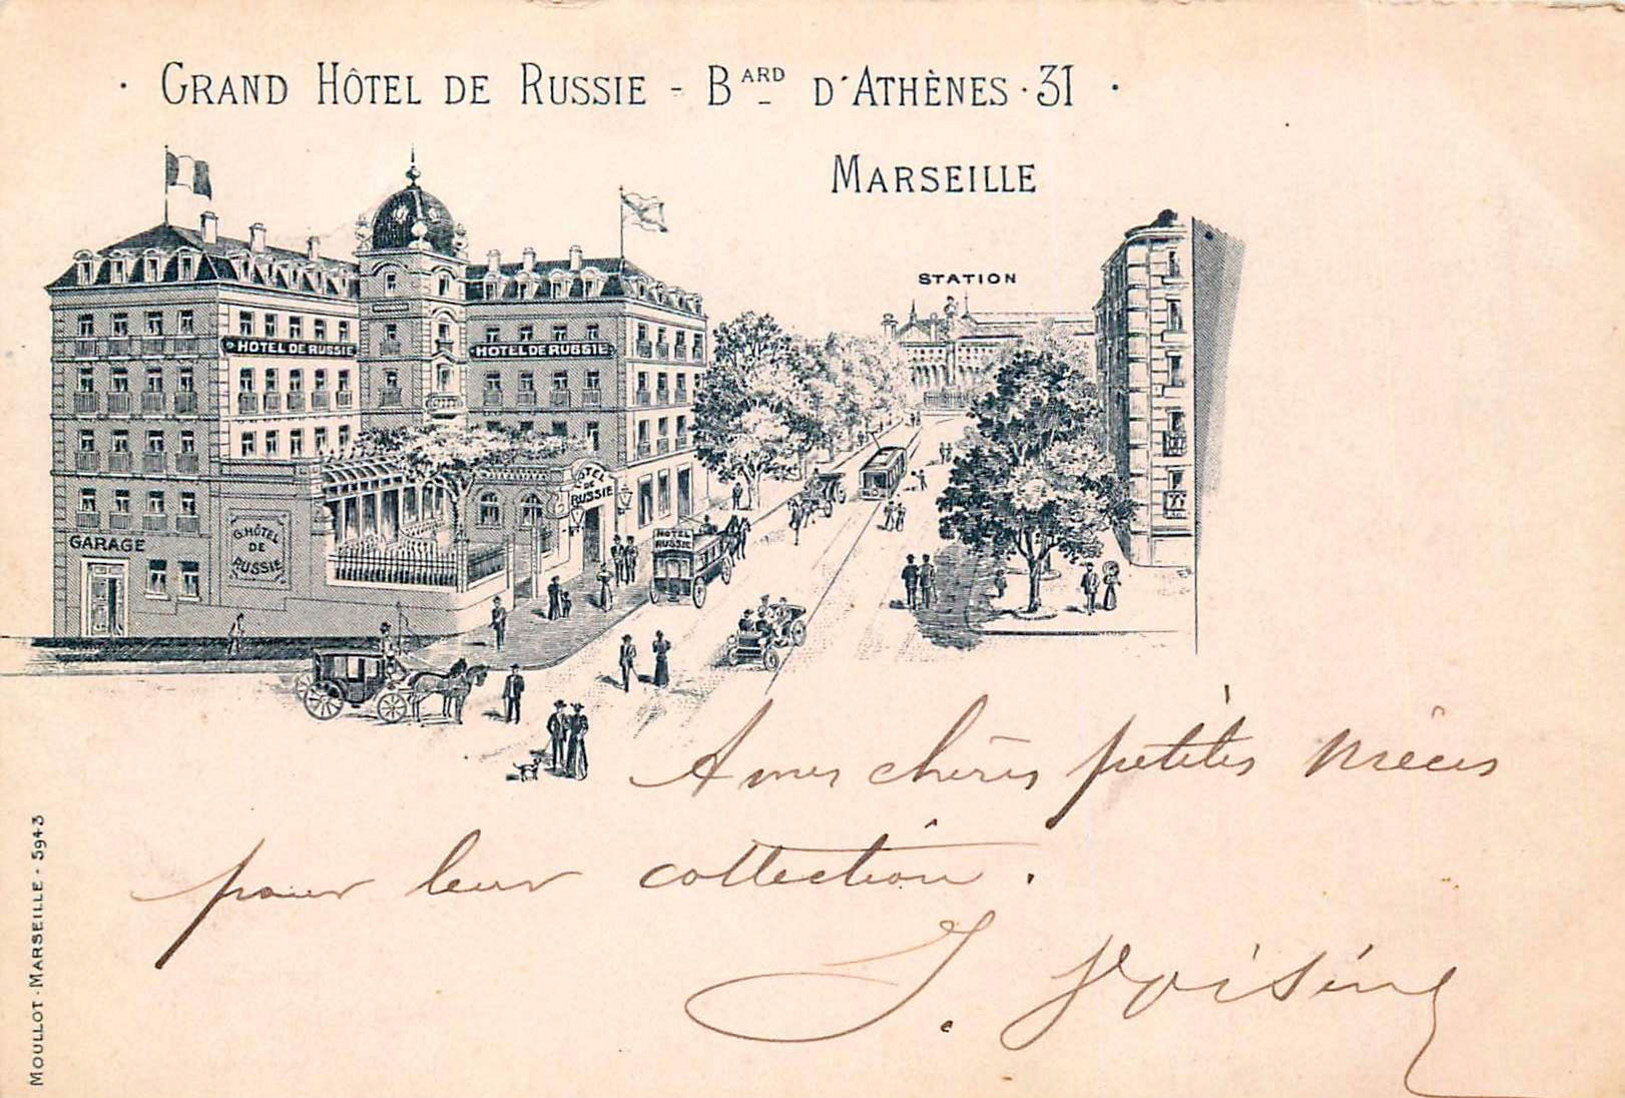 · GRAND HÔTEL DE RUSSIE - BARD D'ATHÈNES · 31 ·
MARSEILLE
STATION
HOTEL DE RUSSIE
HOTEL DE RUSSIE
HOTEL
DE
RUSSIE
GARAGE
G. HÔTEL
DE
RUSSIE
HOTEL
RUSSIE
A mes chères petites nièces
pour leur collection.
J. Voisin
MOULLOT - MARSEILLE - 5943